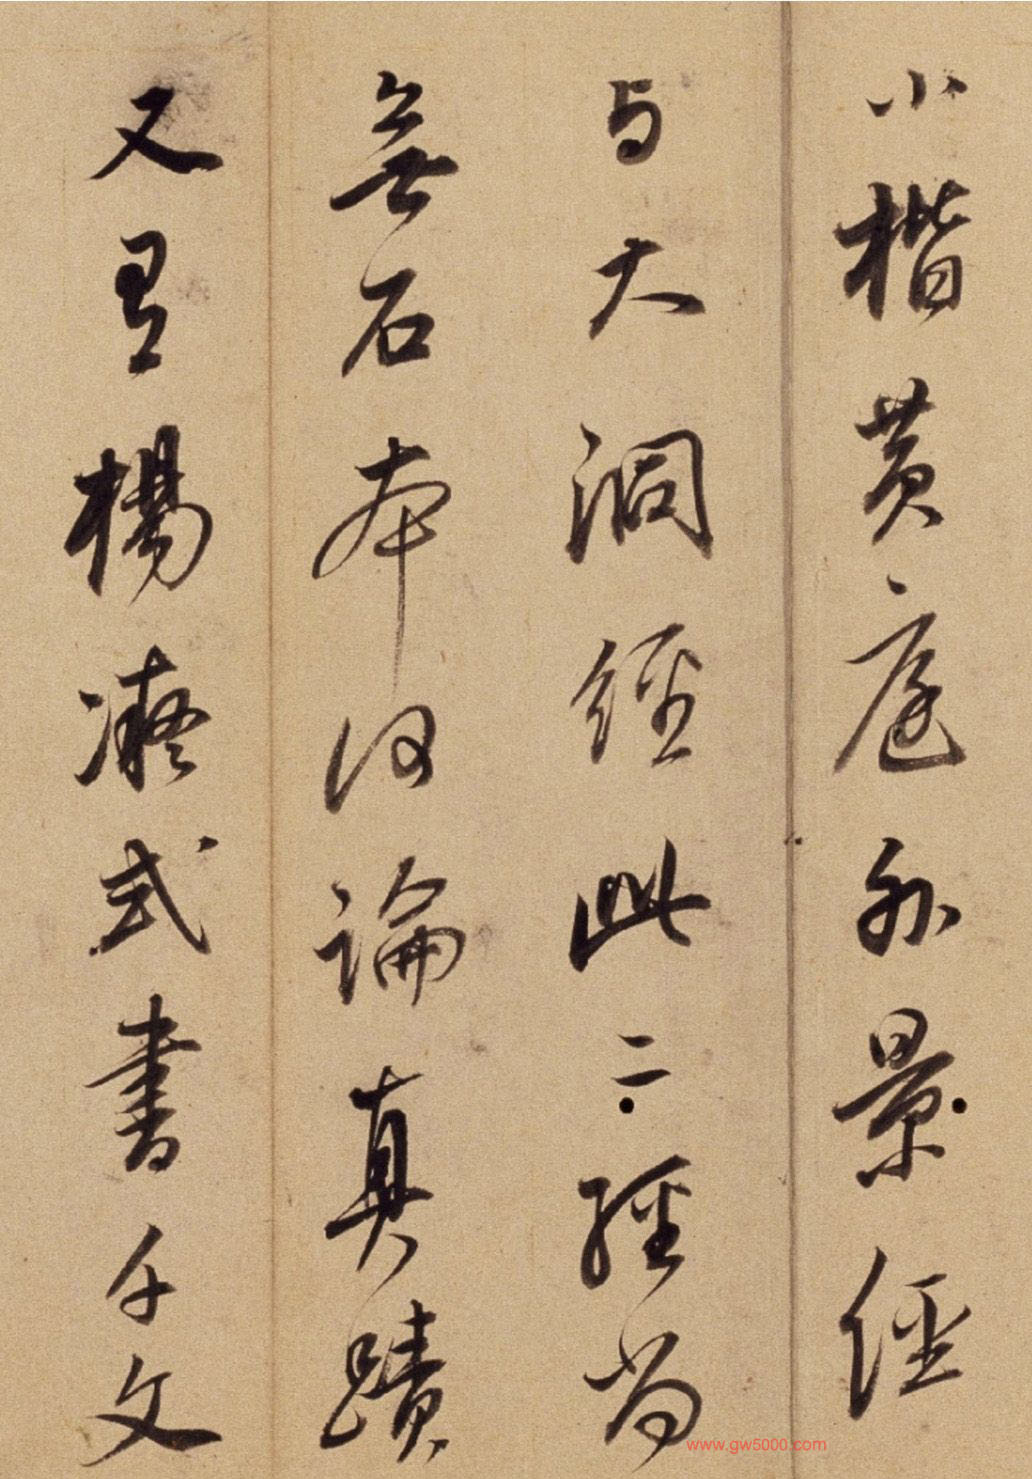 小楷黄庭外景經
与大洞經此二經尚
無石本何論真蹟
又有楊凝式書千文
www.gw5000.com